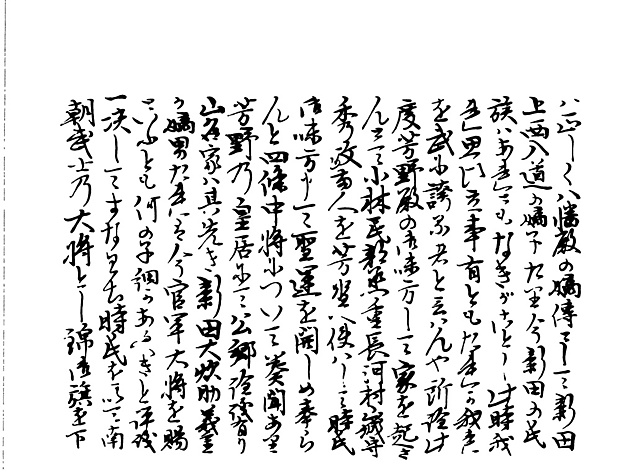 ハ正しく八幡殿の嫡傳として新田
上西入道の嫡子たり今新田の氏
族ハあれともなきがごとし此時我
思ひ立事有ともたれか我
を武に誇る者と云ハんや所詮此
度芳野殿の御味方して家を起さ
んとて小林民部丞重長河村
秀政両人を芳野へ使ハして時氏
御味方申て聖運を開しめ奉ら
んと四條中将について奏聞あり
芳野乃皇居にて公卿詮議有り
山名家ハ其先き新田大炊助義重
か嫡男たれハ今官軍大将を賜
といふとも何の子細かあるへきと評議
一決してすなわち時氏を以て南
朝武士乃大将とし錦御旗を下